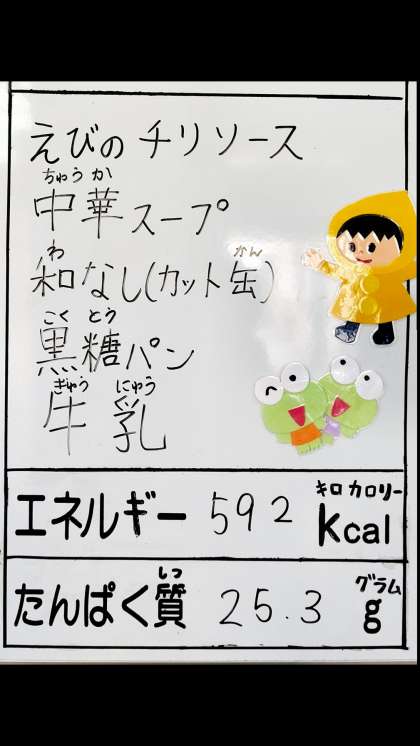 えびの チリソース
ちゅうか
中華スープ
わ かん
和なし(カット缶)
こく とう
黒糖パン
ぎゅう にゅう
牛乳
キロカロリー
エネルギー 592 Kcal
しつ グラム
たんぱく質 25.3 g